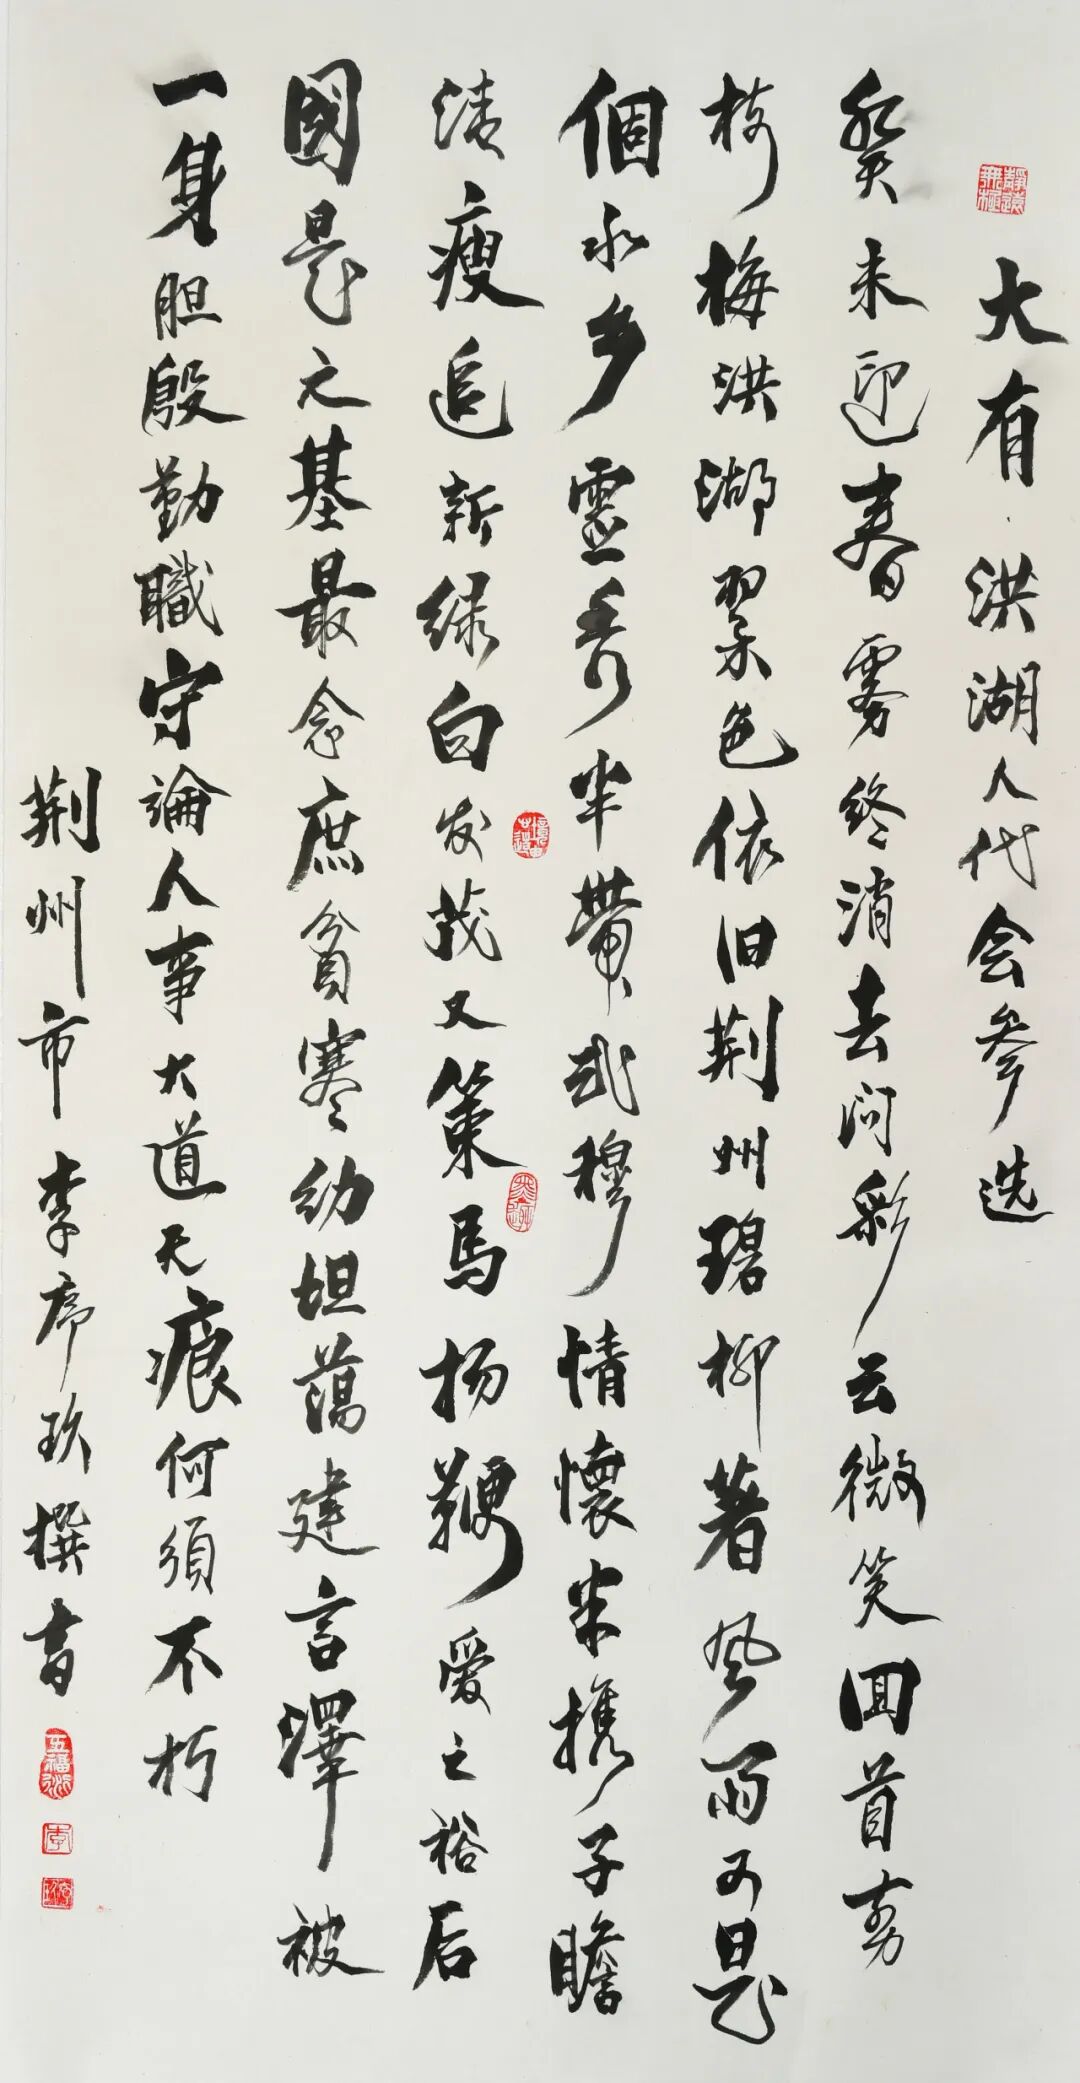 大有·洪湖人代会参选
癸未迎春雾终消去问彩云微笑回首
梅洪湖翠色依旧荆州碧柳著风雨是
個水乡靈秀半帶武穆情懷半携子瞻
清瘦追新绿白发茂又策馬扬鞭爱之裕后
國是之基最念庶贫寒幼坦蕩建言澤被
一身胆殷勤職守論人事大道无痕何须不朽
荆州市李序玖撰书